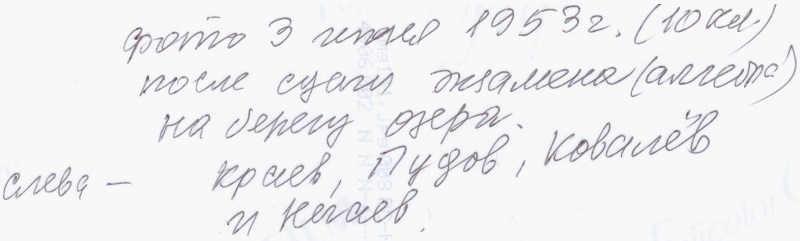 фото 3 июня 1953 г. (10 кл)
после сдачи экзамена (алгебра)
на берегу озера.
слева – Краев, Пудов, Ковалёв
и Негаев.